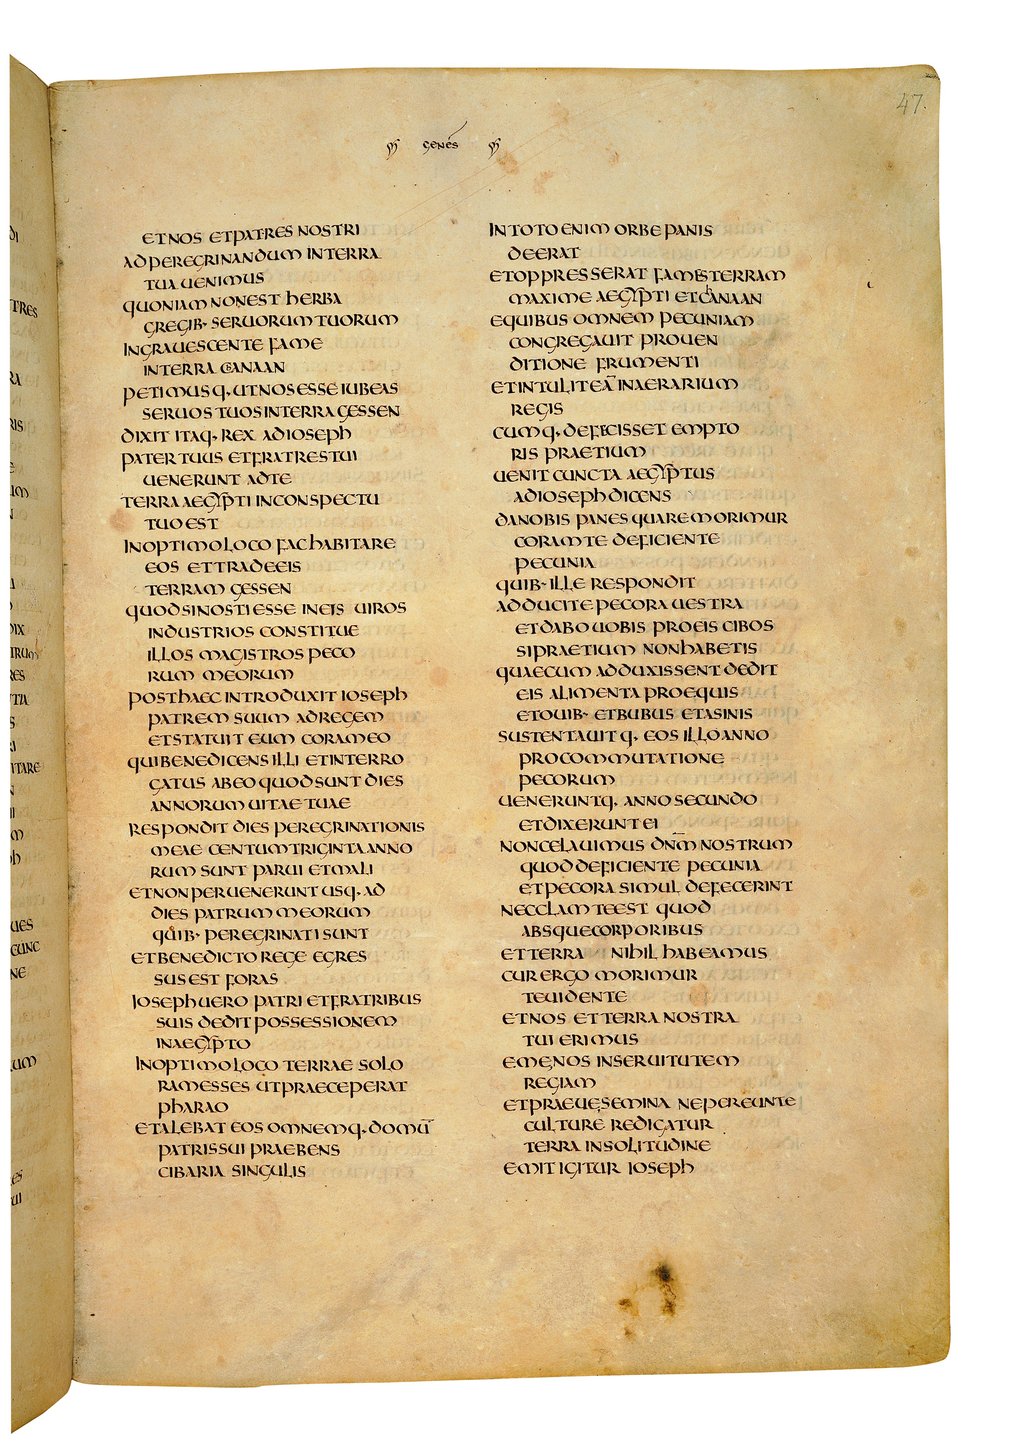 47.
genes
et nos et patres nostri
ad peregrinandum in terra
tua uenimus
quoniam non est herba
gregib· seruorum tuorum
ingrauescente fame
in terra canaan
petimusq· ut nos esse iubeas
seruos tuos in terra gessen
dixit itaq· rex ad ioseph
pater tuus et fratres tui
uenerunt ad te
terra aegypti in conspectu
tuo est
in optimo loco fac habitare
eos et trade eis
terram gessen
quod si nosti esse in eis uiros
industrios constitue
illos magistros peco
rum meorum
post haec introduxit ioseph
patrem suum ad regem
et statuit eum coram eo
qui benedicens illi et interro
gatus ab eo quod sunt dies
annorum uitae tuae
respondit dies peregrinationis
meae centum triginta anno
rum sunt parui et mali
et non peruenerunt usq· ad
dies patrum meorum
quib· peregrinati sunt
et benedicto rege egres
sus est foras
ioseph uero patri et fratribus
suis dedit possessionem
in aegypto
in optimo loco terrae solo
ramesses ut praeceperat
pharao
et alebat eos omnemq· domū
patris sui praebens
cibaria singulis
in toto enim orbe panis
deerat
et oppresserat fames terram
maxime aegypti et canaan
e quibus omnem pecuniam
congregauit pro uen
ditione frumenti
et intulit eā in aerarium
regis
cumq· defecisset empto
ris praetium
uenit cuncta aegyptus
ad ioseph dicens
da nobis panes quare morimur
coram te deficiente
pecunia
quib· ille respondit
adducite pecora uestra
et dabo uobis pro eis cibos
si praetium non habetis
quae cum adduxissent dedit
eis alimenta pro equis
et ouib· et bubus et asinis
sustentauitq· eos illo anno
pro commutatione
pecorum
ueneruntq· anno secundo
et dixerunt ei
non celauimus dnm̄ nostrum
quod deficiente pecunia
et pecora simul defecerint
nec clam te est quod
absque corporibus
et terra nihil habeamus
cur ergo morimur
te uidente
et nos et terra nostra
tui erimus
eme nos in seruitutem
regiam
et praeue semina ne pereunte
culture redigatur
terra in solitudine
emit igitur ioseph